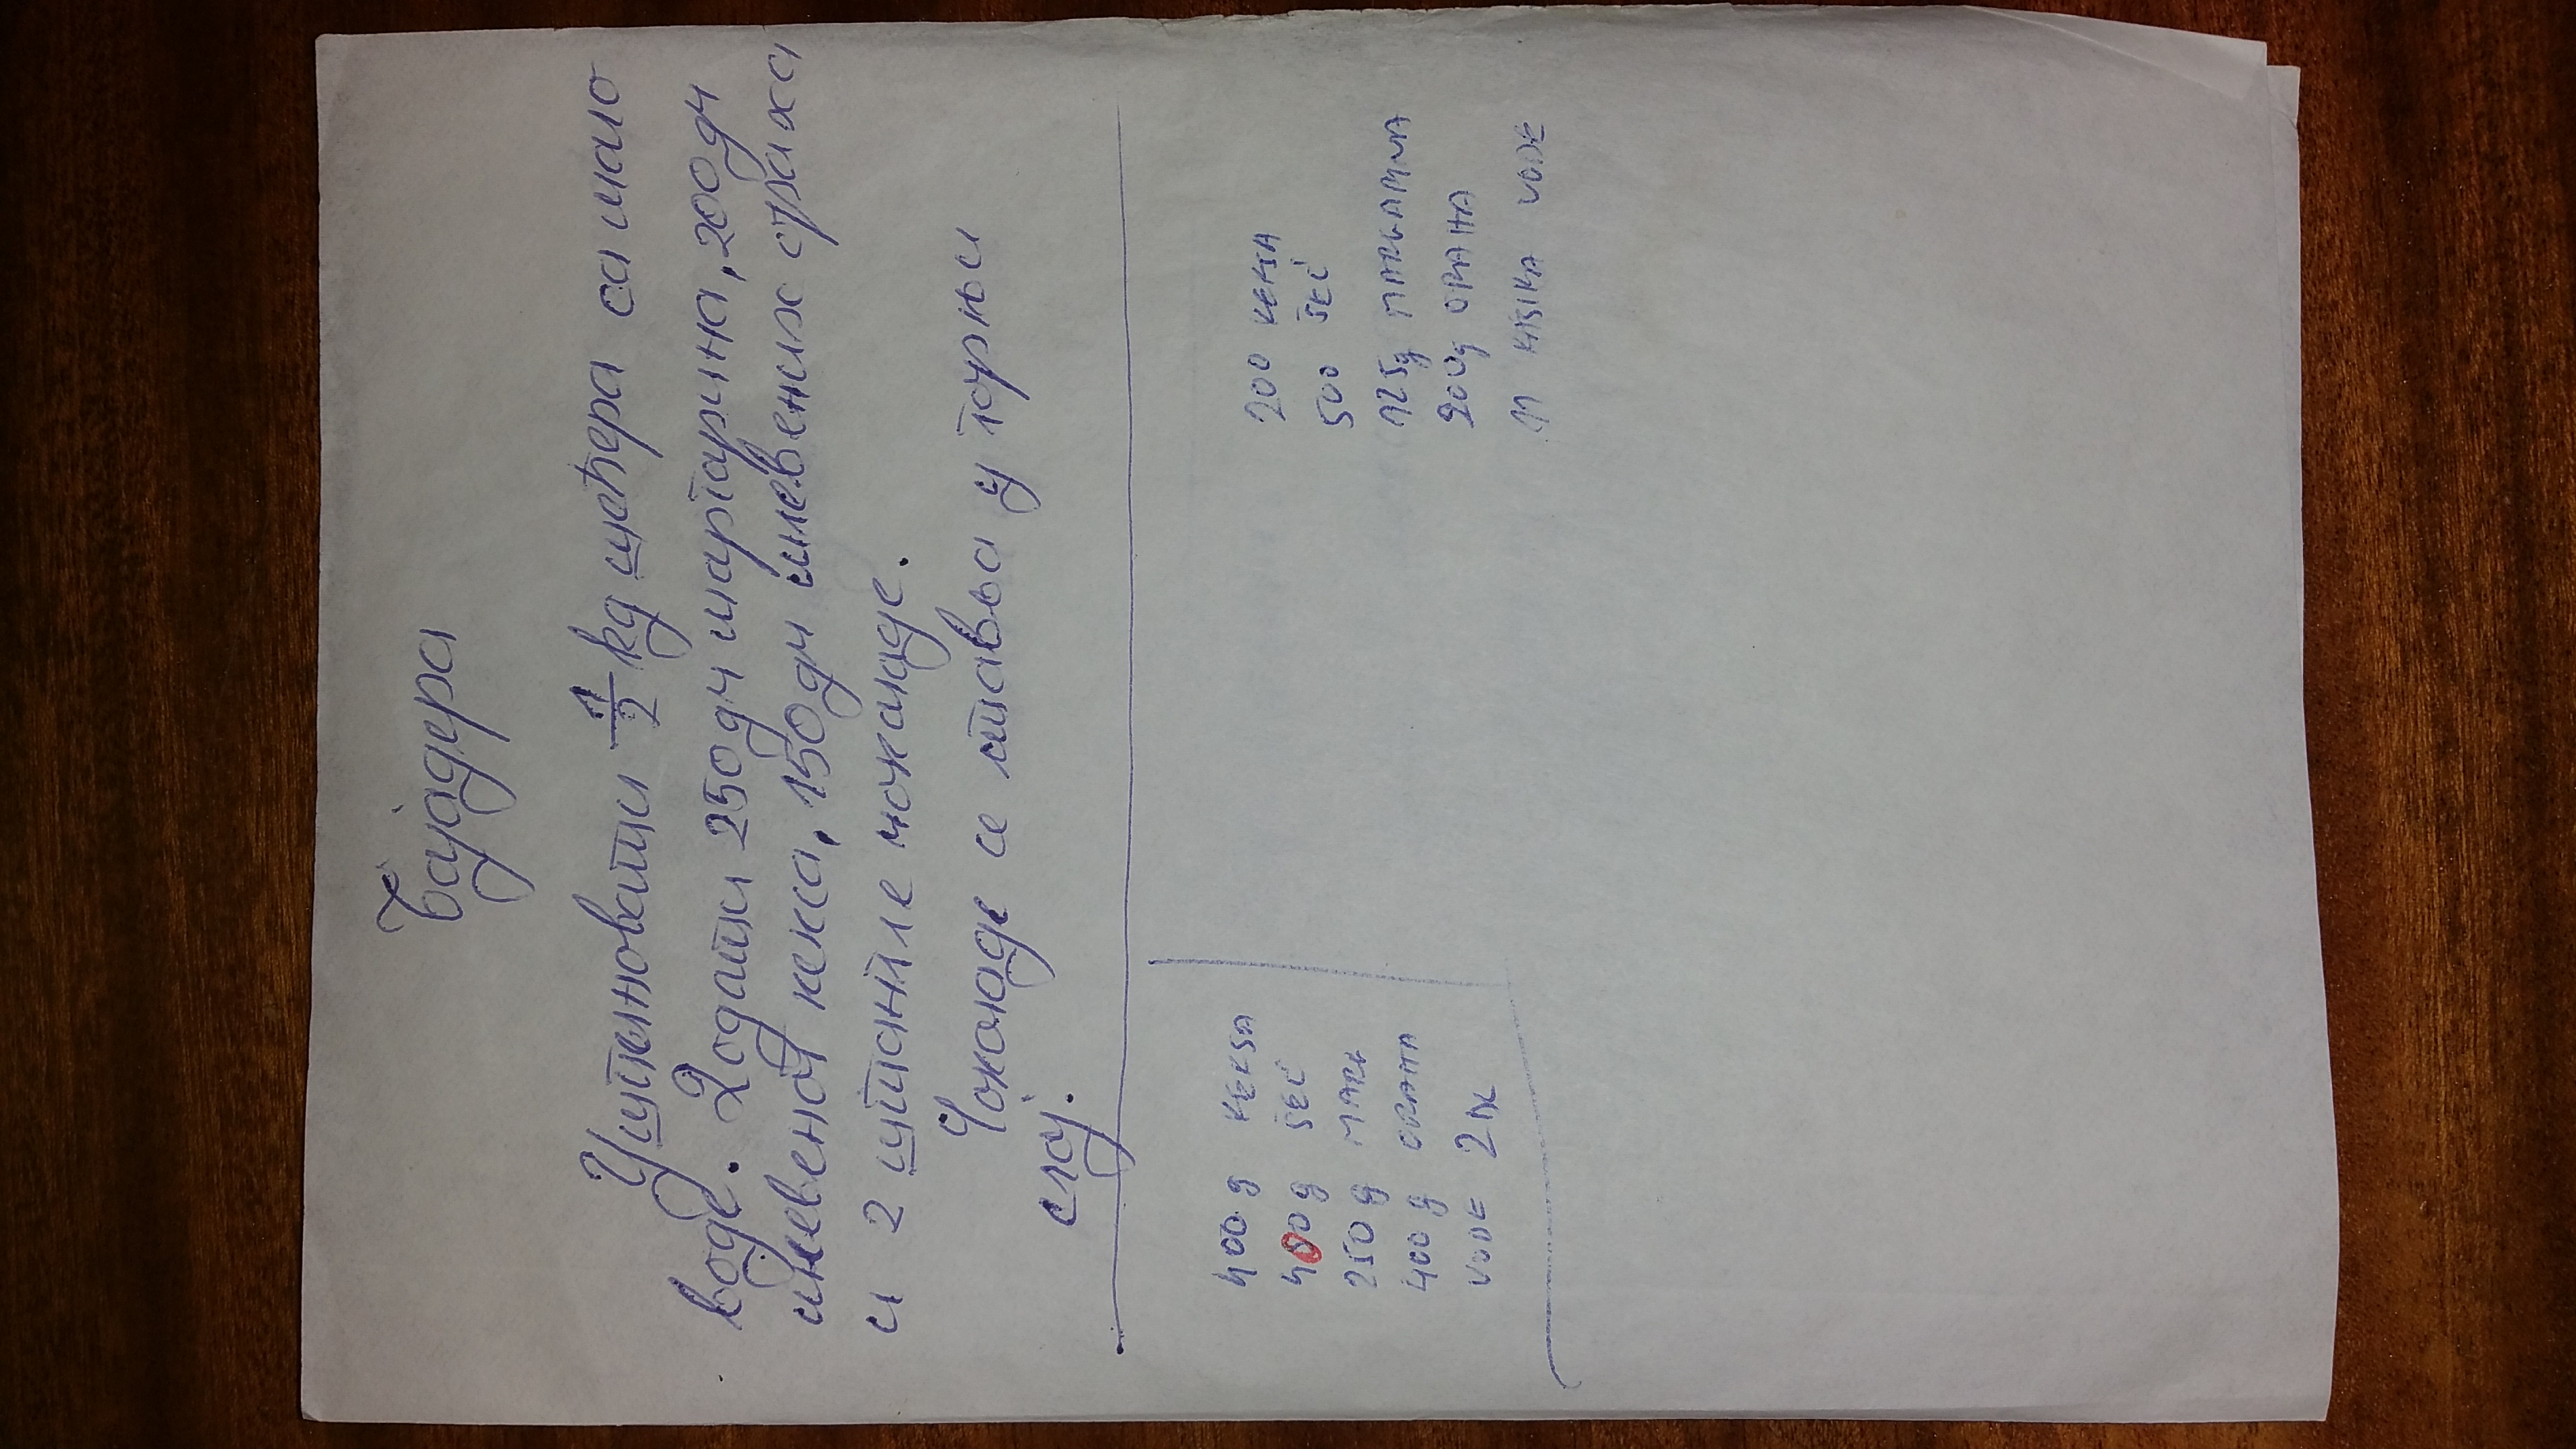 Бајадера
Ушпиновати 1/2 kg шећера са мало
воде. Додати 250 дг маргарина, 200 дг
млевеног кекса, 150 дг млевених ораха
и 2 штангле чоколаде.
Чоколаде се ставља у горњи
слој.
400 g KEKSA
400 g ŠEĆ
250 g MARG
400 g ORAHA
VODE 2 DL
200 KEKSA
500 ŠEĆ
125g MARGARINA
200g ORAHA
11 KAŠIKA VODE